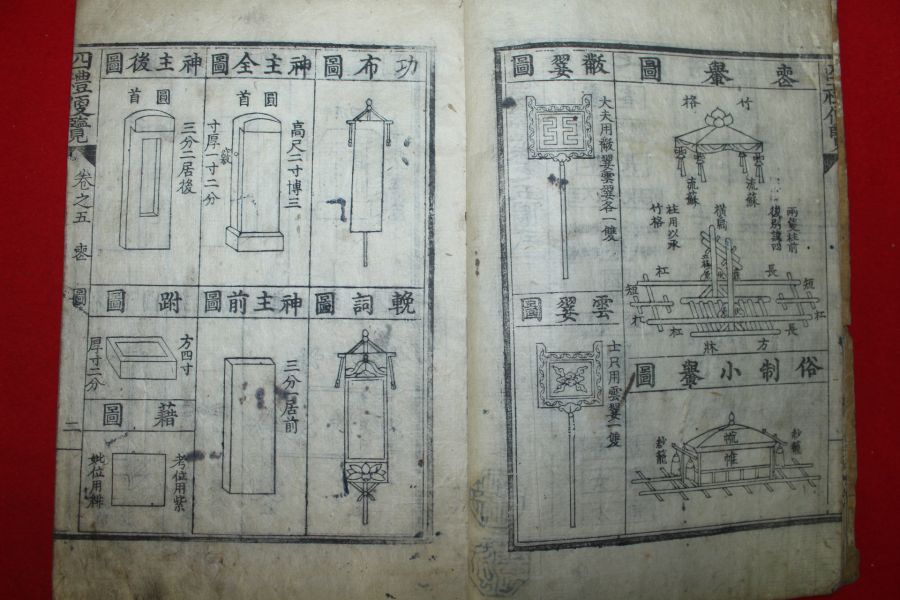 喪轝圖
竹格
流蘇
流蘇
兩隻柱前
橫扃
柱用以承
竹格
長
杠
短
杠
短
杠
長
杠
方牀
俗制小轝圖
紗籠
帷
紗籠
黻翣圖
大夫用黻翣雲翣各一雙
雲翣圖
士只用雲翣一雙
功布圖
輓詞圖
神主全圖
圓首
高尺二寸博三
寸厚一寸二分
竅
神主前圖
三分一居前
神主後圖
圓首
三分二居後
跗圖
方四寸
厚寸二分
藉圖
考位用紫
妣位用緋
四禮便覽
卷之五
喪
圖
一